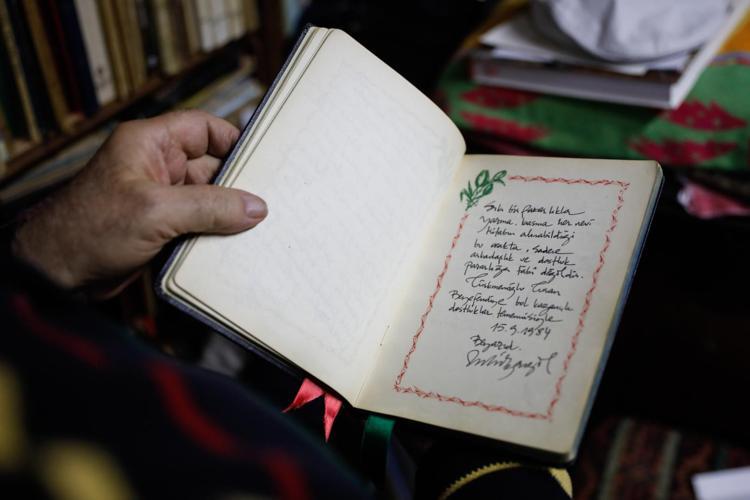 Sıkı bir pazarlıkla
yazma, basma her nevi
kitabın alınabildiği
bu mekta, sadece
arkadaşlık ve dostluk
pazarlığa tabi değildir.
Türkmenoğlu Turan
Beyefendiye bol kazançlı
dostluklar temennisiyle
15.9.1984
Beyazıd.